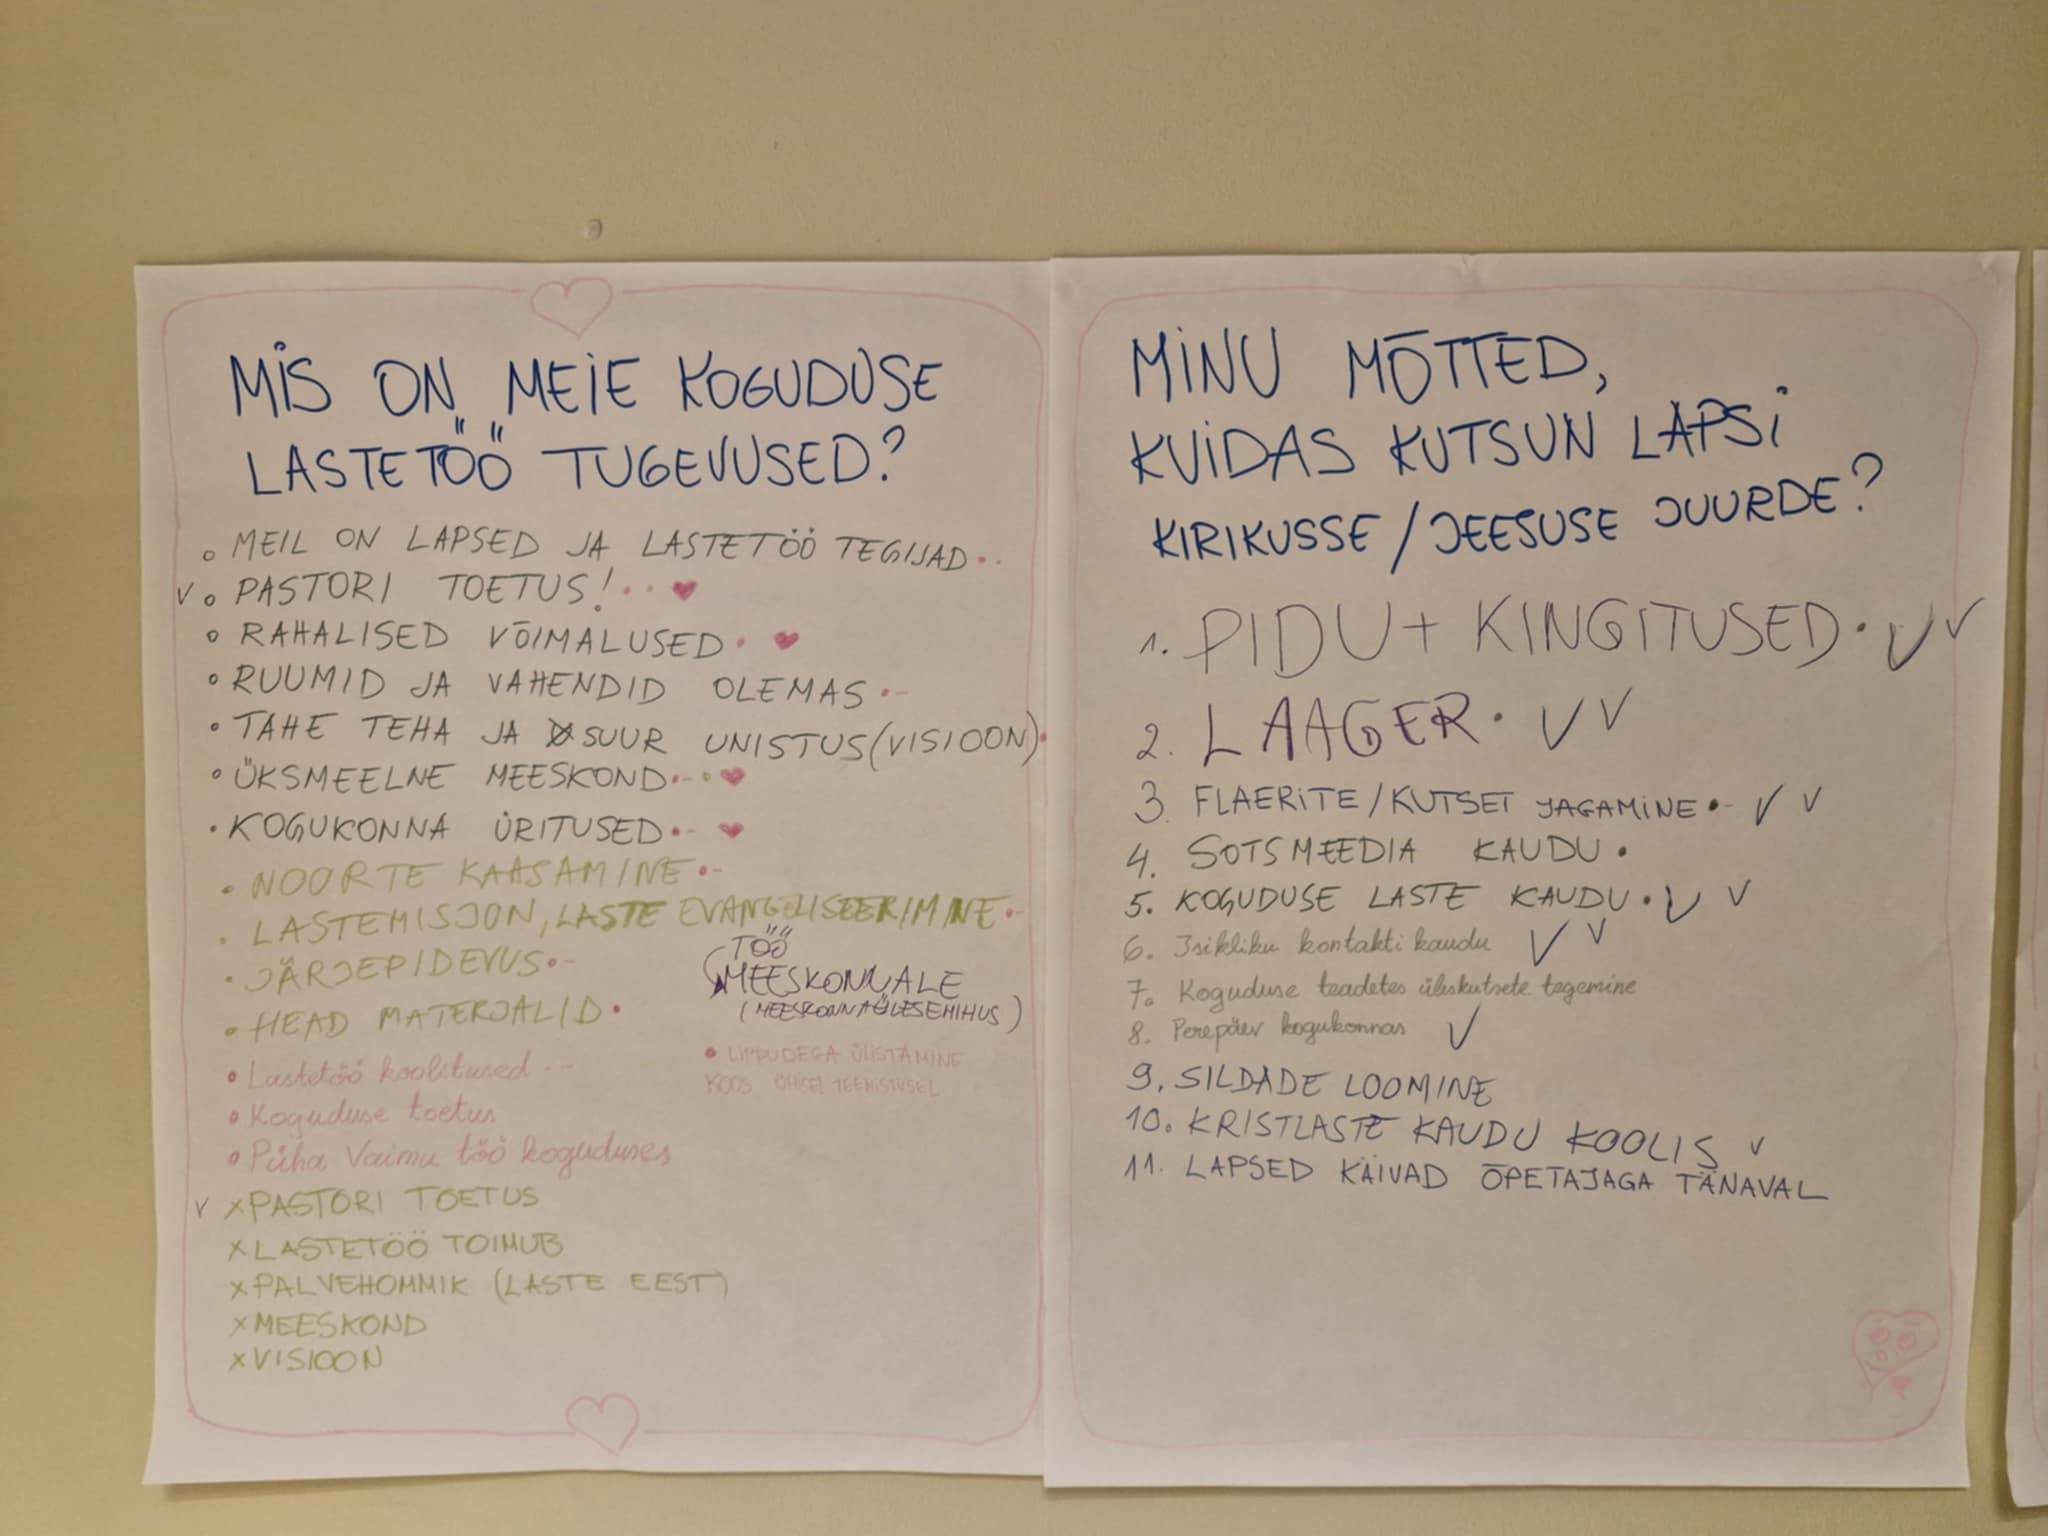 MIS ON MEIE KOGUDUSE
LASTETÖÖ TUGEVUSED?
MEIL ON LAPSED JA LASTETÖÖ TEGIJAD
PASTORI TOETUS!
RAHALISED VÕIMALUSED
RUUMID JA VAHENDID OLEMAS
TAHE TEHA JA SUUR UNISTUS (VISIOON)
ÜKSMEELNE MEESKOND
KOGUKONNA ÜRITUSED
NOORTE KAASAMINE
LASTEMISJON, LASTE EVANGELISEERIMINE
JÄRJEPIDEVUS
HEAD MATERJALID
TÖÖ
MEESKONNALE
(MEESKONNA
LIPPUDEGA ÜLISTAMINE
KOOS
Lastetöö koolitused
Koguduse toetus
Püha Vaimu töö koguduses
x PASTORI TOETUS
x LASTETÖÖ TOIMUB
x PALVEHOMMIK (LASTE EEST)
x MEESKOND
x VISIOON
MINU MÕTTED,
KUIDAS KUTSUN LAPSI
KIRIKUSSE / JEESUSE JUURDE?
1. PIDU + KINGITUSED
2. LAAGER
3 FLAERITE/KUTSET JAGAMINE
4. SOTSMEEDIA KAUDU
5. KOGUDUSE LASTE KAUDU
6. Isikliku kontakti kaudu
7. Koguduse teadetes üleskutsete tegemine
8. Perepäev kogukonnas
9. SILDADE LOOMINE
10. KRISTLASTE KAUDU KOOLIS
11. LAPSED KÄIVAD ÕPETAJAGA TÄNAVAL